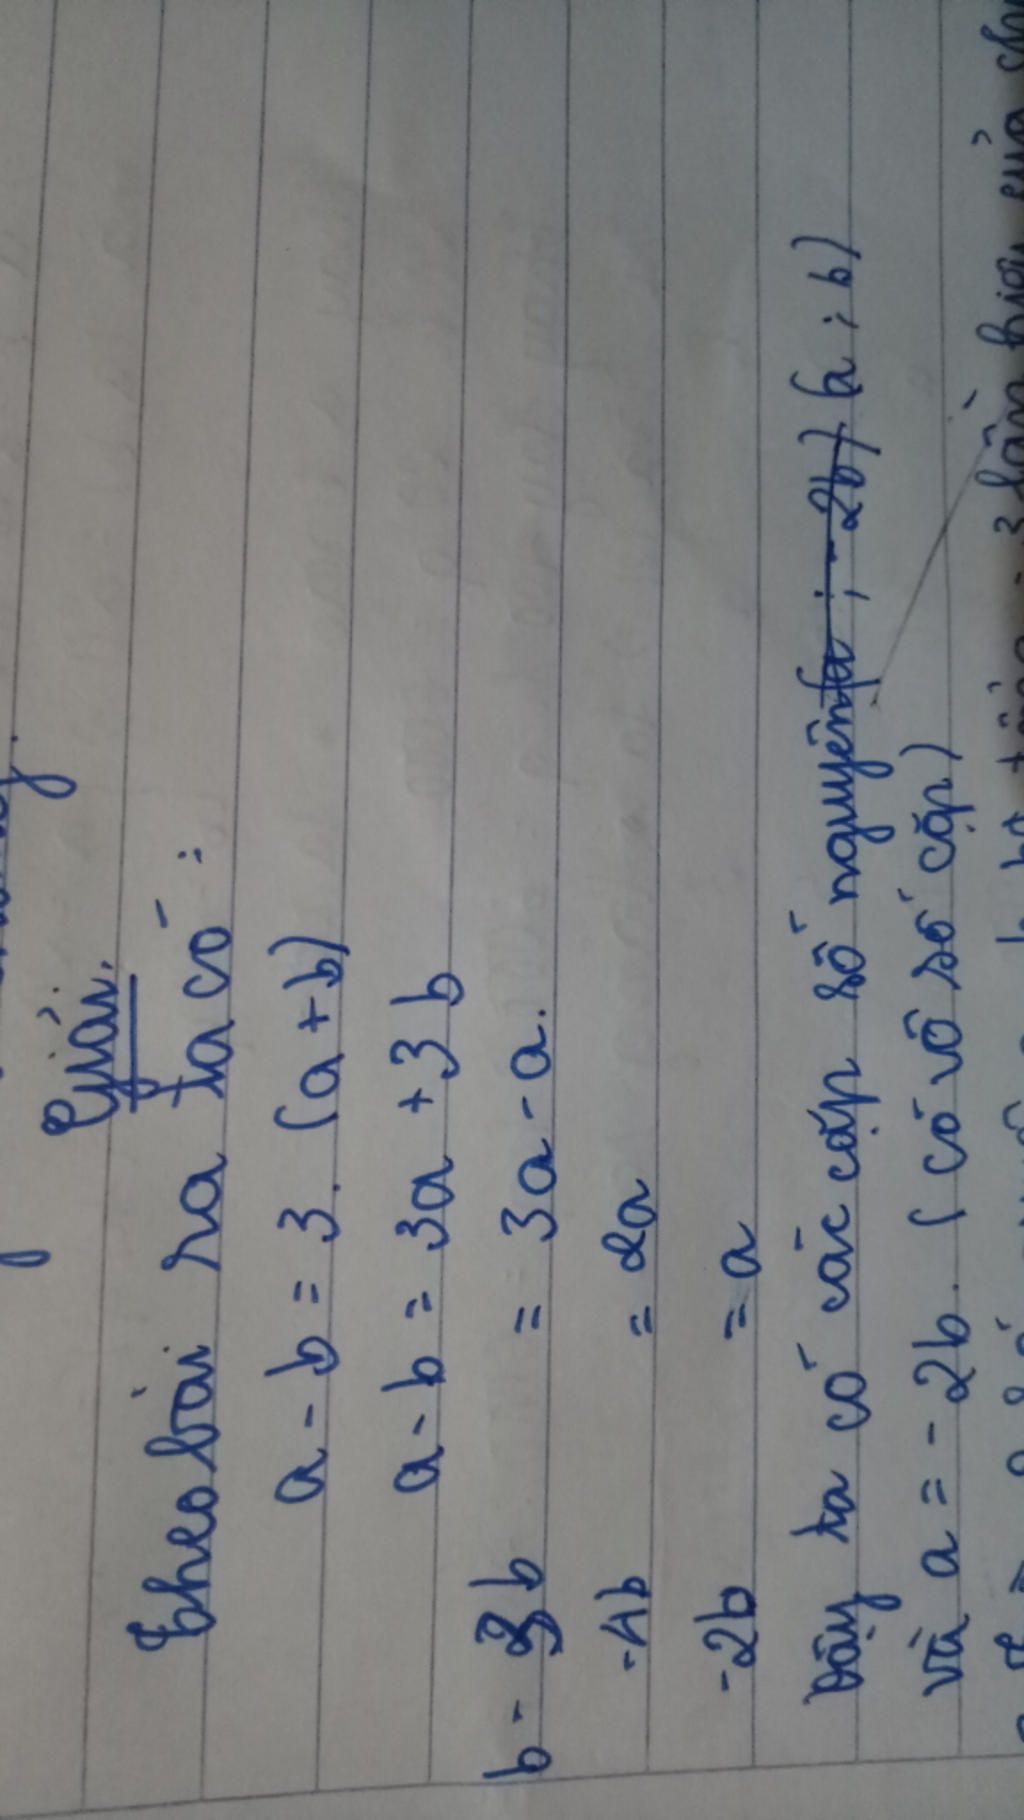 Giải.
Theo bài ra ta có:
a - b = 3. (a + b)
a - b = 3a + 3b
b - 3b = 3a - a.
-4b = 2a
-2b = a
Vậy ta có các cặp số nguyên (a ; -2b) (a ; b)
và a = -2b. (có vô số cặp)